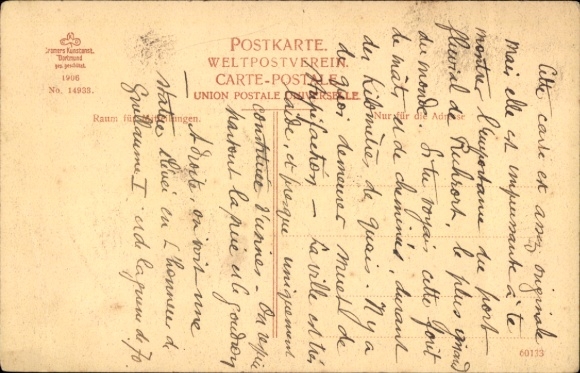 Cramers Kunstanst.
Dortmund
ges. geschützt.
1906
No. 14933.
POSTKARTE.
WELTPOSTVEREIN.
CARTE-POSTALE
UNION POSTALE UNIVERSELLE
Raum für Mitteilungen.
Nur für die Adresse
60133
Cette carte est assez originale
Mais elle est impuissante à te
montrer l'importance du port
fluvial de Ruhrort, le plus grand
du monde. Si tu voyais cette forêt
de mâts et de cheminées, durant
des kilomètres de quais. Il y a
de quoi demeurer muet de
stupéfaction — La ville est très
laide, et presque uniquement
construite d'usines - On respire
partout la suie et le goudron
A droite, on voit une
statue élevée en l'honneur de
Guillaume I et de la guerre de 70.